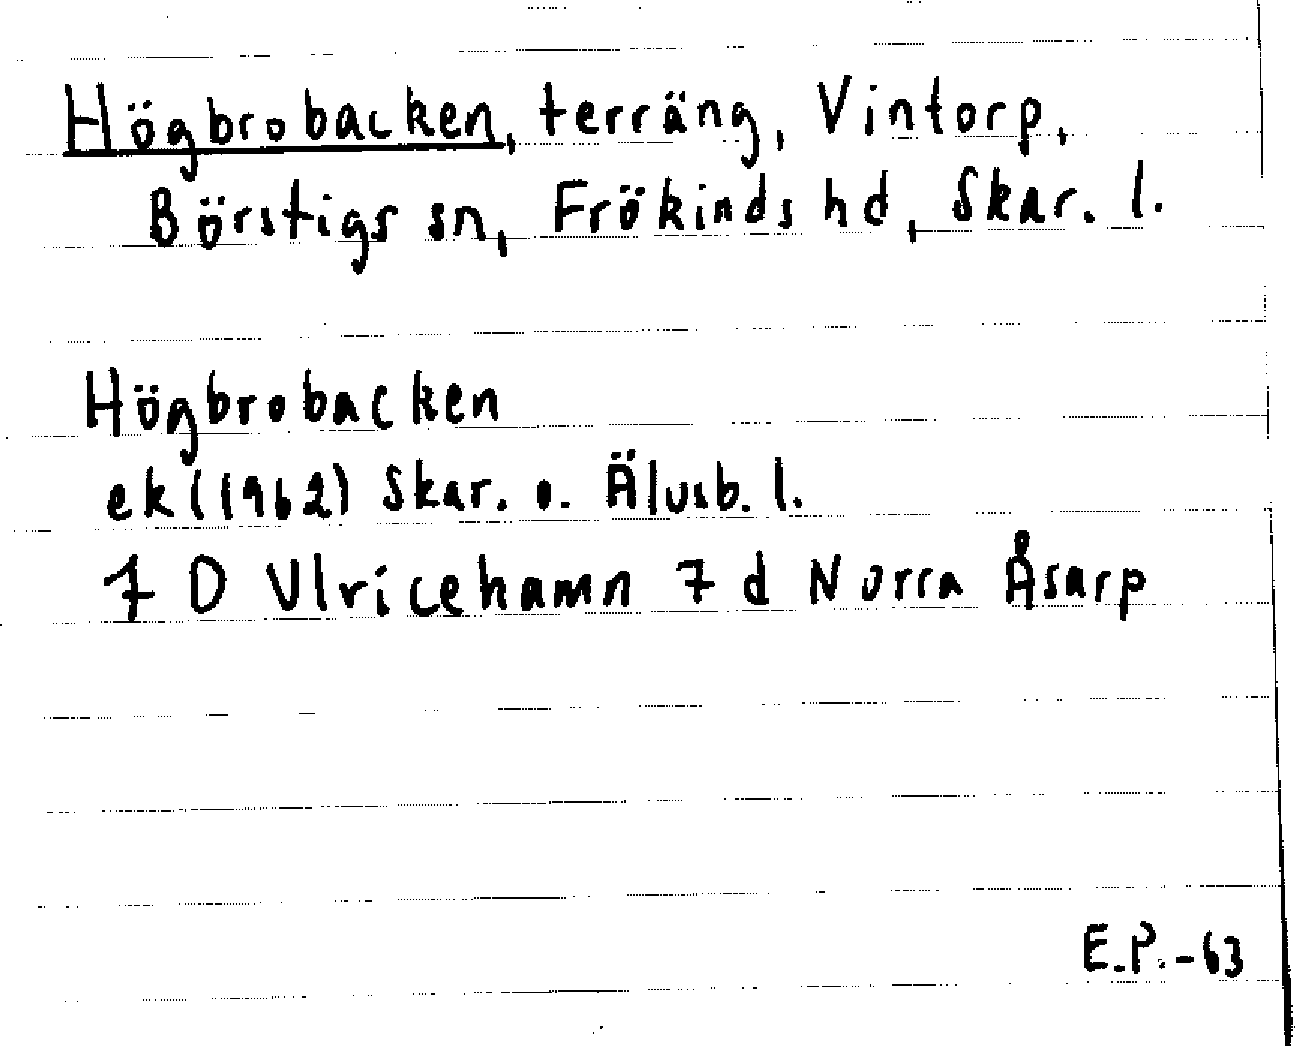 Högbrobacken, terräng, Vintorp,
Börstigs sn, Frökinds hd, Skar. l.
Högbrobacken
ek(1962) Skar. o. Älvsb. l.
7 D Ulricehamn 7 d Norra Åsarp
E.P.-63